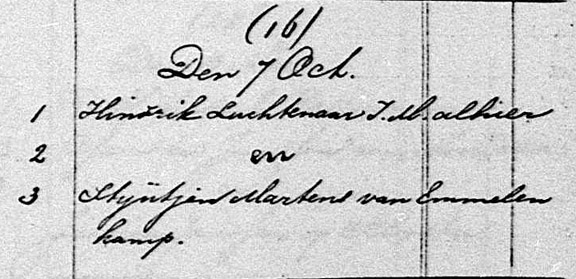 (16)
Den 7 Oct.
1 Hindrik Luchtenaar J.M. alhier
2 en
3 Stijntjen Martens van Emmelen
kamp.